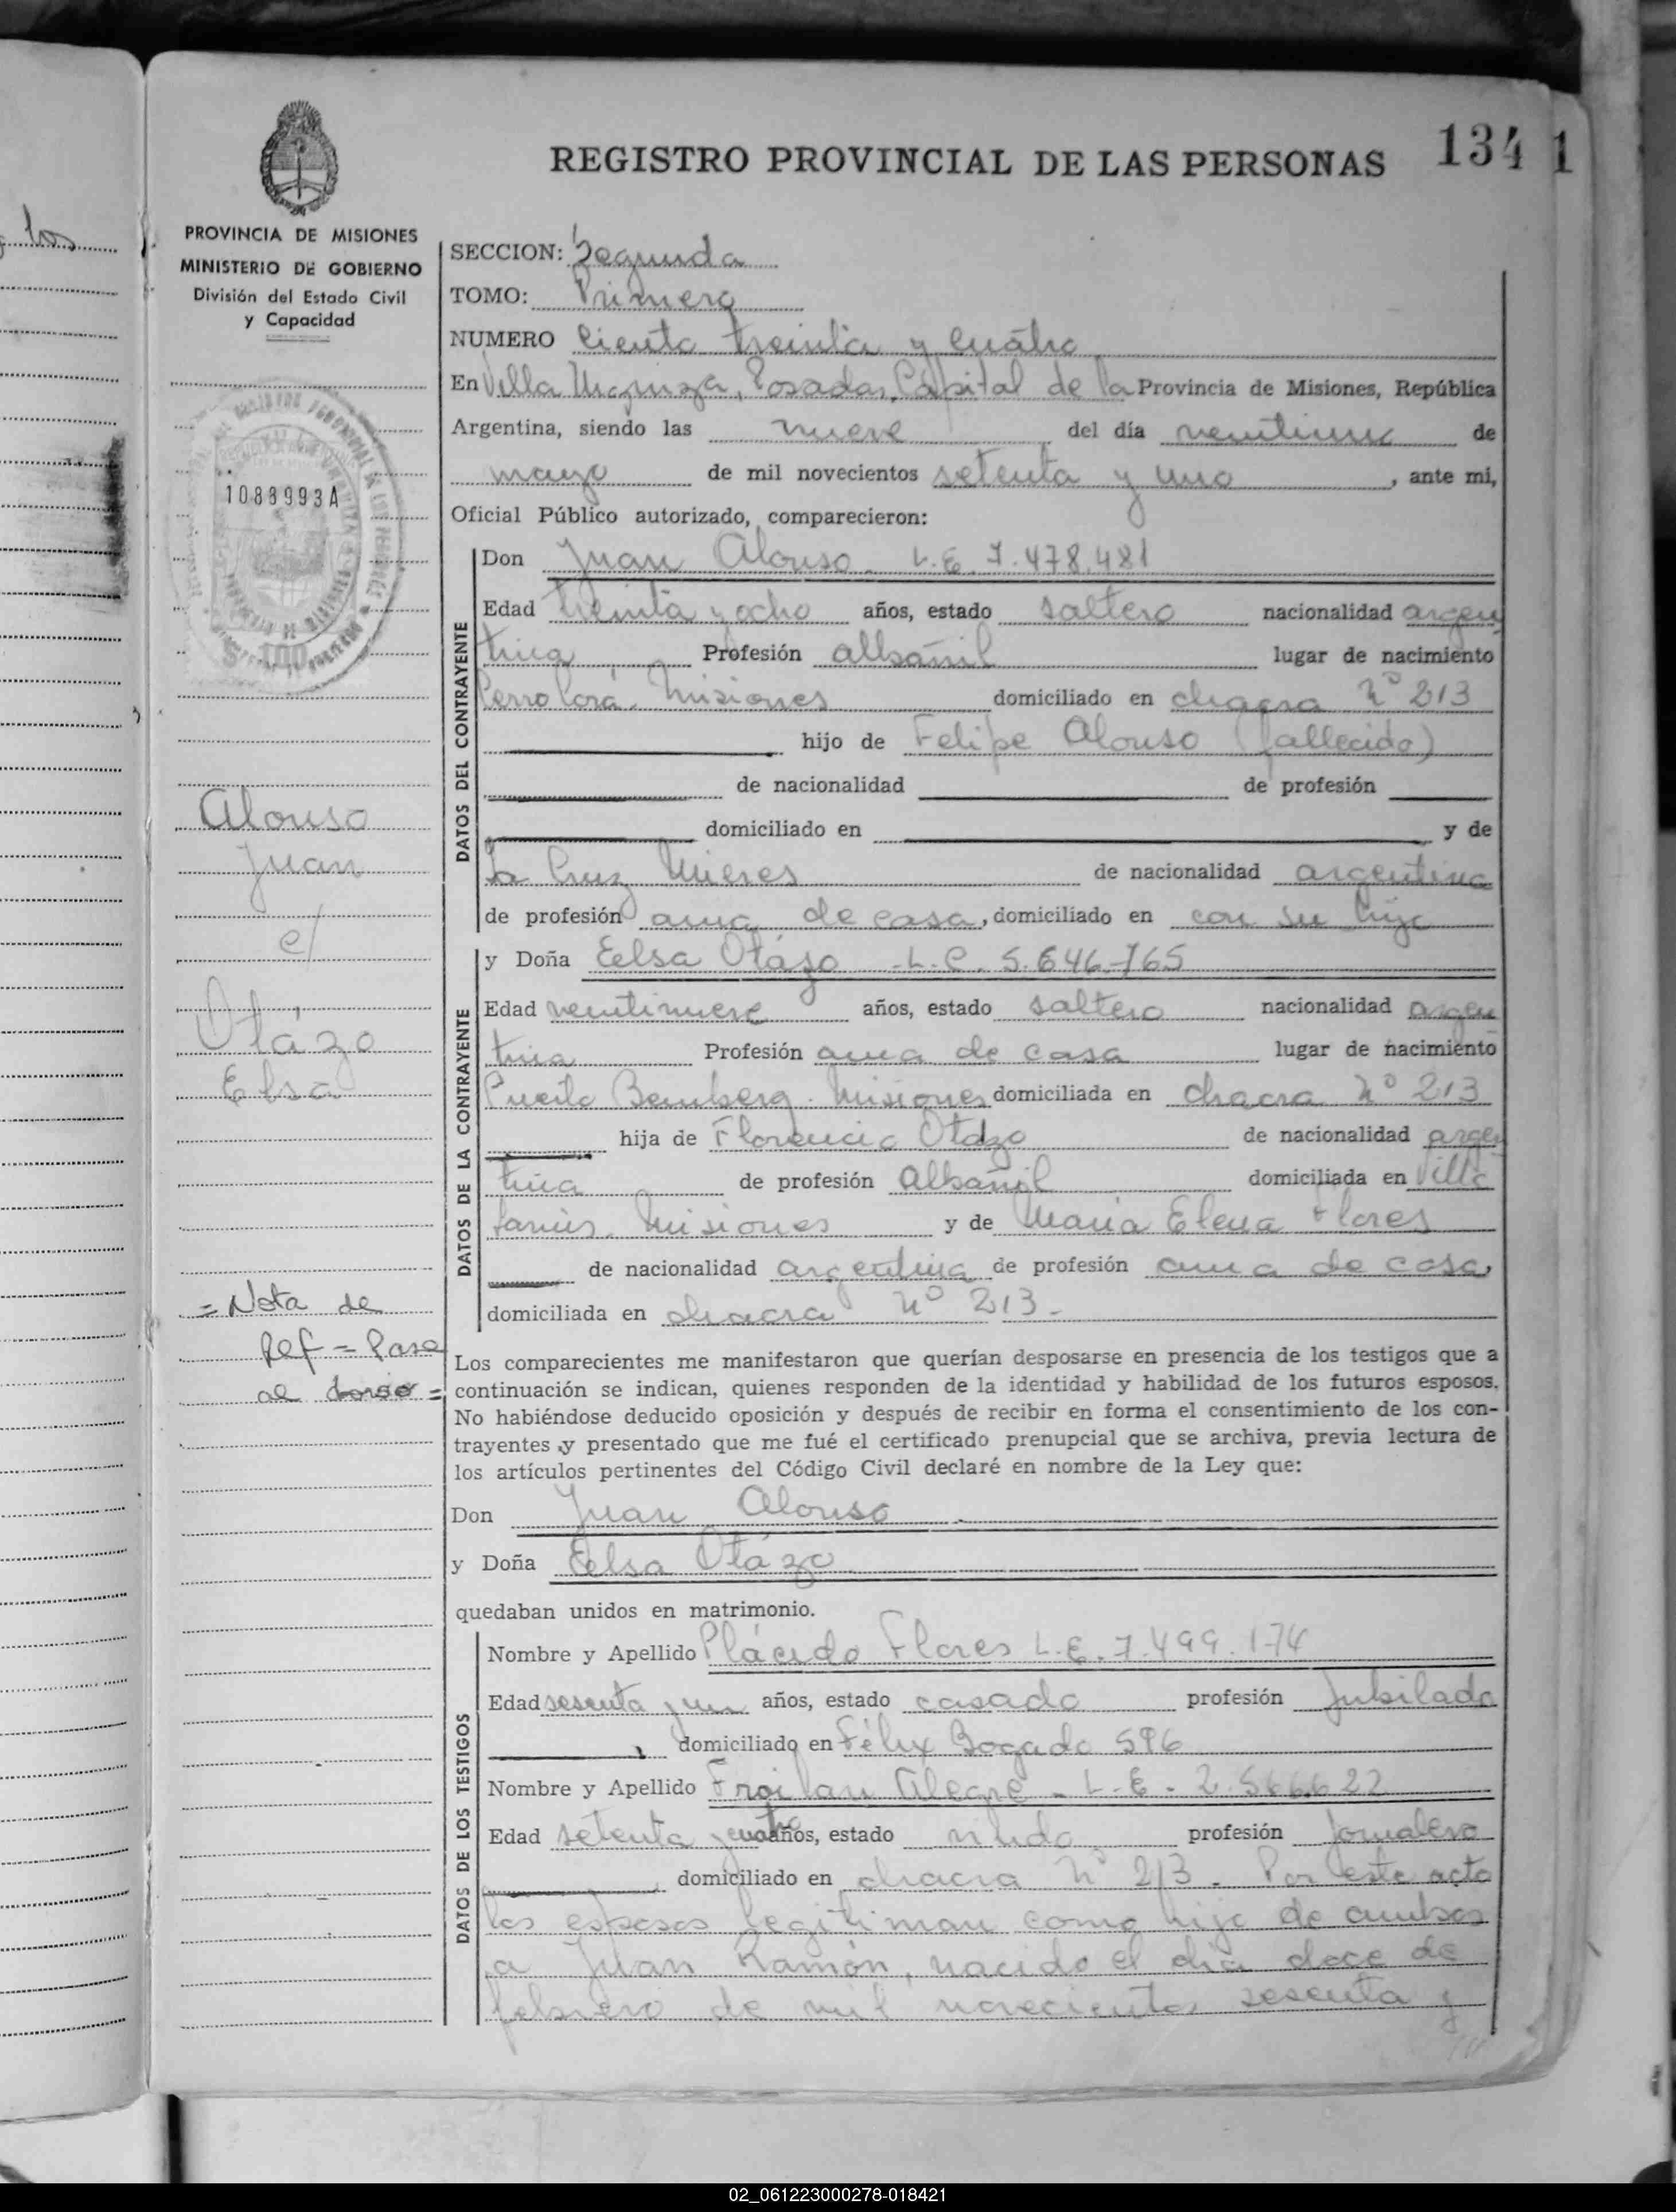 los
REGISTRO PROVINCIAL DE LAS PERSONAS
134 1
PROVINCIA DE MISIONES
MINISTERIO DE GOBIERNO
División del Estado Civil
y Capacidad
1083993A
$ 100
Alonso
Juan
c/
Otázo
Elsa
= Nota de
Ref = Pase
al dorso =
SECCION: Segunda
TOMO: Primero
NUMERO Ciento treinta y cuátro
En Villa Urquiza, Posadas, Capital de la Provincia de Misiones, República
Argentina, siendo las nueve del día veintiuno de
mayo de mil novecientos setenta y uno, ante mi,
Oficial Público autorizado, comparecieron:
DATOS DEL CONTRAYENTE
Don Juan Alonso. L.E. 7.478.481
Edad treinta y ocho años, estado soltero nacionalidad argen
tina Profesión albañil lugar de nacimiento
Cerro Corá. Misiones domiciliado en chacra Nº 213
hijo de Felipe Alonso (fallecido)
de nacionalidad de profesión
domiciliado en y de
La Cruz Mieres de nacionalidad argentina
de profesión ama de casa, domiciliado en con su hijo
DATOS DE LA CONTRAYENTE
y Doña Eelsa Otázo -L.C. 5.646.765
Edad veintinueve años, estado soltera nacionalidad argen
tina Profesión ama de casa lugar de nacimiento
Puerto Bemberg. Misiones domiciliada en chacra Nº 213
hija de Florencio Otázo de nacionalidad argen
tina de profesión Albañil domiciliada en Villa
Lanús. Misiones y de María Elena Flores
de nacionalidad argentina de profesión ama de casa,
domiciliada en chacra Nº 213-
Los comparecientes me manifestaron que querían desposarse en presencia de los testigos que a
continuación se indican, quienes responden de la identidad y habilidad de los futuros esposos.
No habiéndose deducido oposición y después de recibir en forma el consentimiento de los con-
trayentes y presentado que me fué el certificado prenupcial que se archiva, previa lectura de
los artículos pertinentes del Código Civil declaré en nombre de la Ley que:
Don Juan Alonso
y Doña Eelsa Otázo
quedaban unidos en matrimonio.
DATOS DE LOS TESTIGOS
Nombre y Apellido Plácido Flores L.E. 7.499.174
Edad sesenta y un años, estado casado profesión Jubilado
domiciliado en Félix Bogado 596
Nombre y Apellido Froilan Alegre - L-E- 2.566.622
Edad setenta y cuatro años, estado viudo profesión Jornalero
domiciliado en chacra Nº 213. Por este acto
los esposos legitiman como hijo de ambos
a Juan Ramón, nacido el día doce de
febrero de mil novecientos sesenta y
02_061223000278-018421